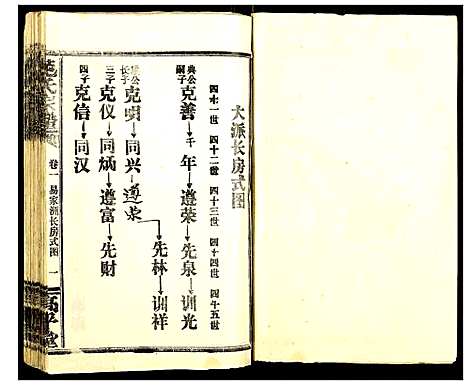 大派长房式图
四十一世 四十二世 四十三世 四十四世 四十五世
典公嗣子 克善→千年→遵荣→先泉→训光
长子 克唄→同兴→遵荣→先林→训祥
三子 克仪→同炳→遵富→先财
四子 克信→同汉
范氏宗谱
卷一 易家派长房式图 一
高平堂